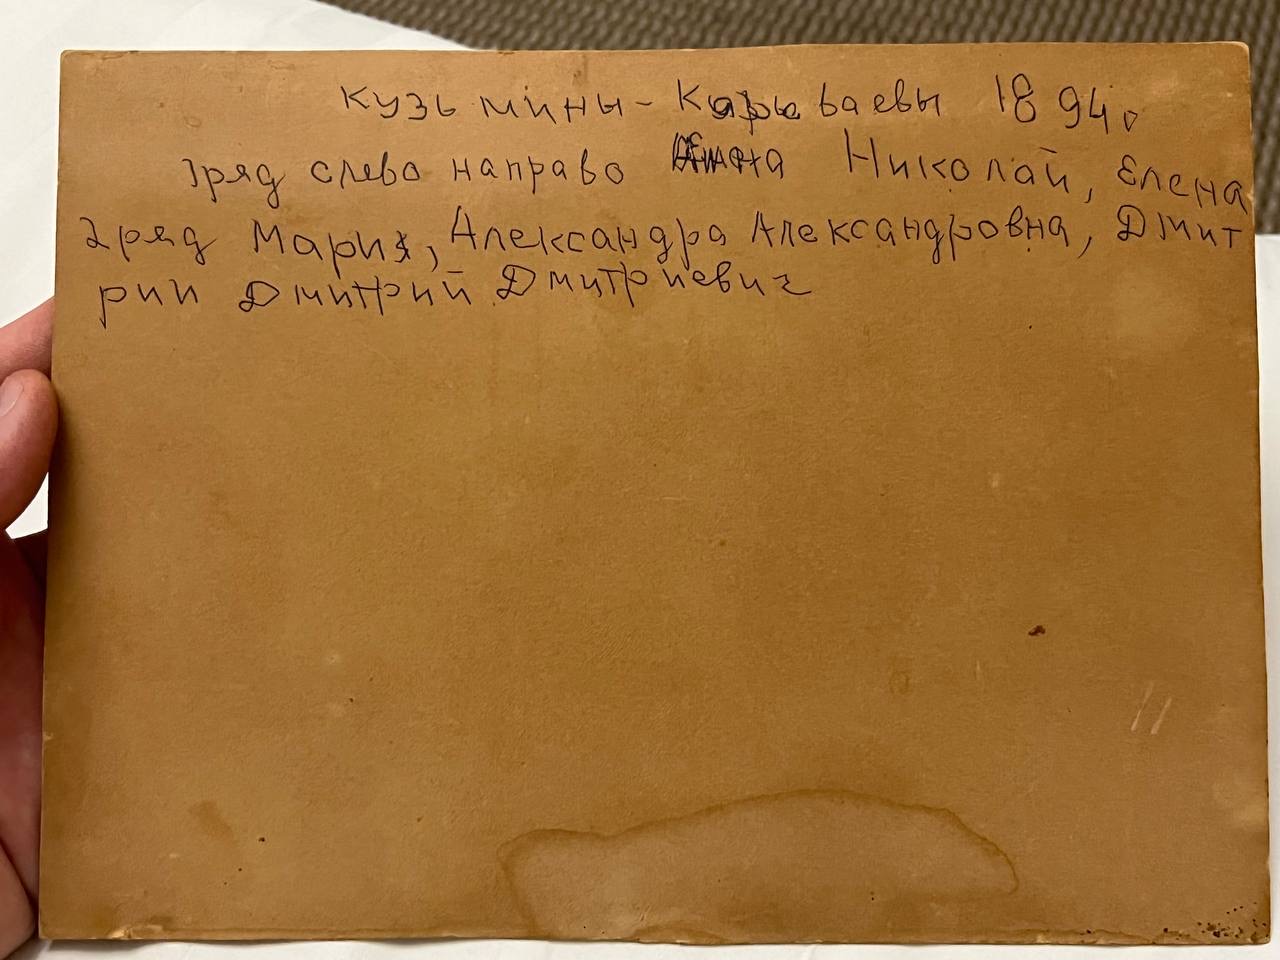 Кузьмины-Караваевы 1894.
1ряд слево направо Николай, Елена
2ряд Мария, Александра Александровна, Дмит
рий Дмитрий Дмитриевич